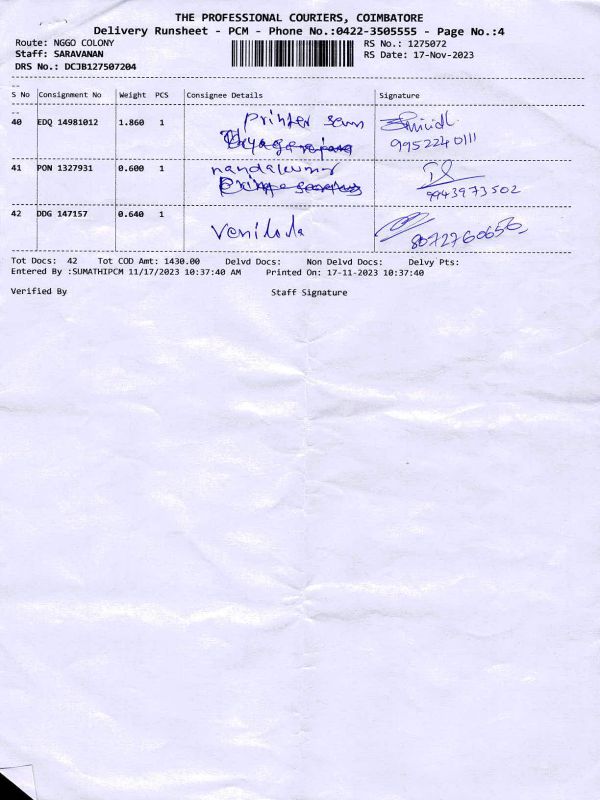 THE PROFESSIONAL COURIERS, COIMBATORE
Delivery Runsheet - PCM - Phone No.:0422-3505555 - Page No.:4
Route: NGGO COLONY RS No.: 1275072
Staff: SARAVANAN RS Date: 17-Nov-2023
DRS No.: DCJB127507204
S No Consignment No Weight PCS Consignee Details Signature
40 EDQ 14981012 1.860 1 Printer
9952240111
41 PON 1327931 0.600 1 nandakumar
9943973502
42 DDG 147157 0.640 1
8072760650
Tot Docs: 42 Tot COD Amt: 1430.00 Delvd Docs: Non Delvd Docs: Delvy Pts:
Entered By :SUMATHIPCM 11/17/2023 10:37:40 AM Printed On: 17-11-2023 10:37:40
Verified By Staff Signature